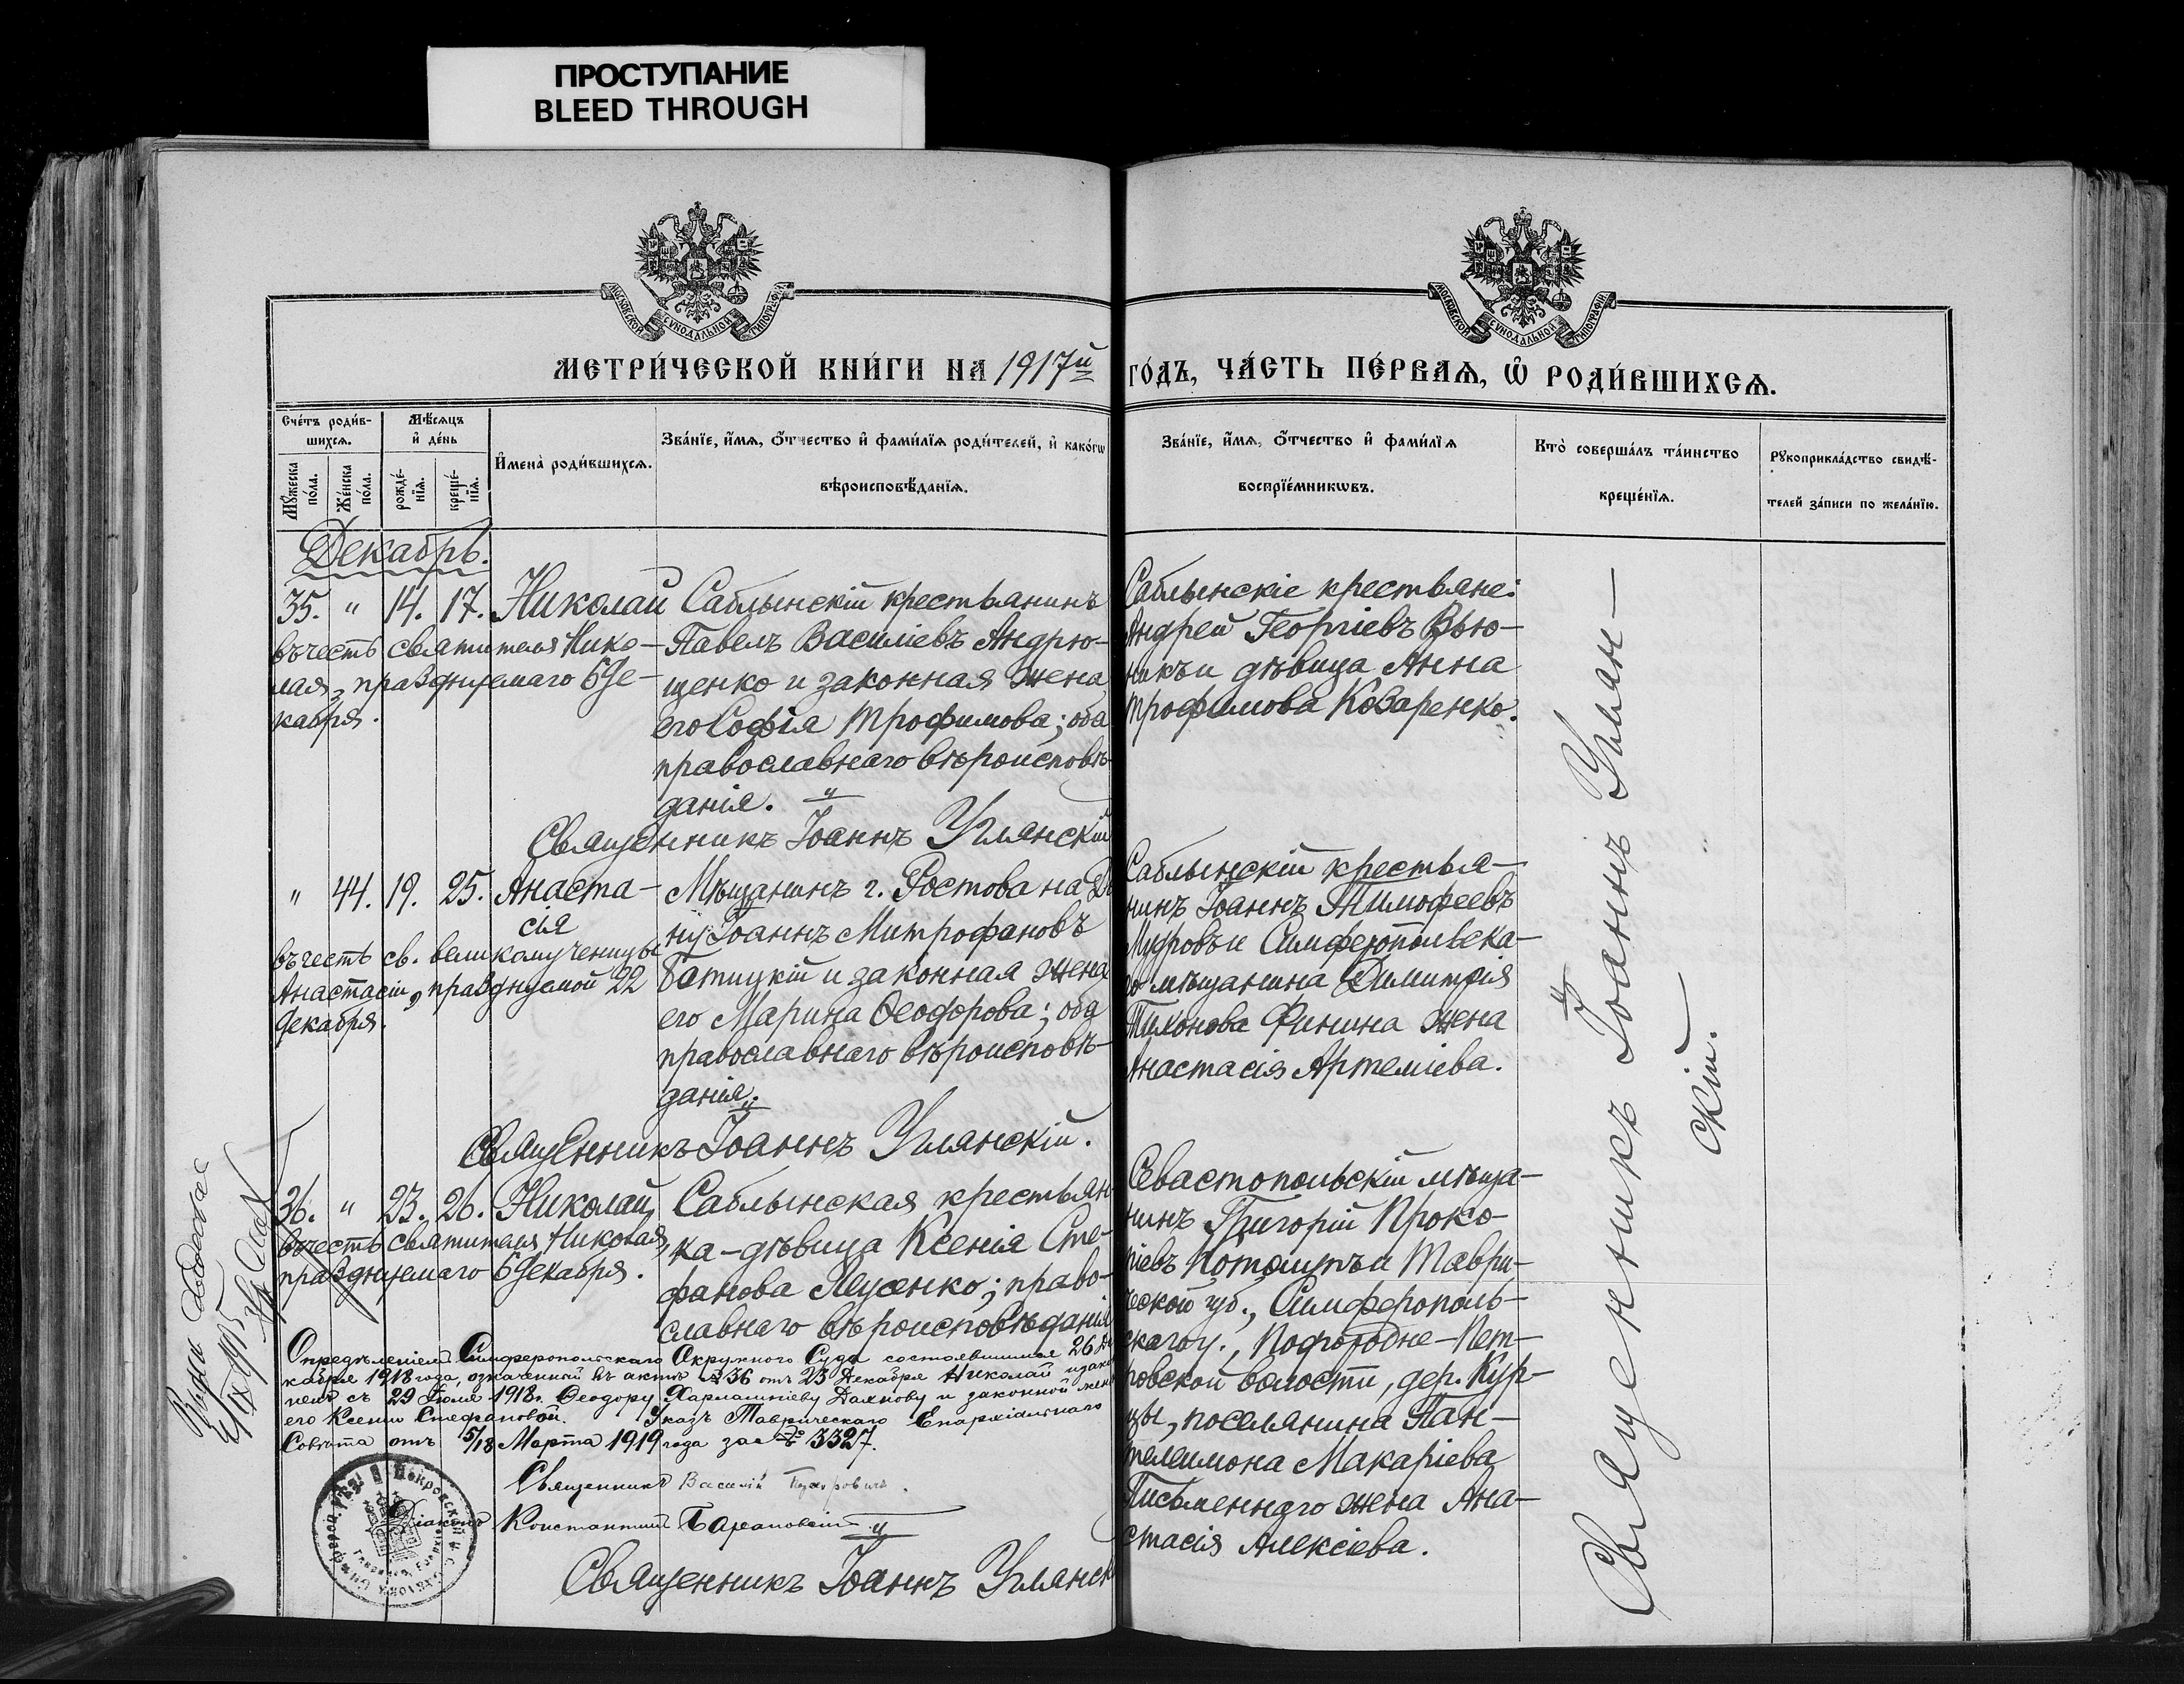 ПРОСТУПАНИЕ
BLEED THROUGH
МОСКОВСКОЙ СѴНОДАЛЬНОЙ ТИПОГРАФІИ
МОСКОВСКОЙ СѴНОДАЛЬНОЙ ТИПОГРАФІИ
МЕТРИ́ЧЕСКОЙ КНИ́ГИ НА 1917й ГО́ДЪ, ЧА́СТЬ ПЕ́РВАѦ, Ѡ҆ РОДИ́ВШИХСѦ.
Сче́тъ роди́в-
шихсѧ.
Мꙋжеска
по́ла.
Же́нска
по́ла.
Мѣ́сѧцъ
и҆ де́нь
рожде́-
нїѧ.
креще́-
нїѧ.
И҆мена̀ роди́вшихсѧ.
Зва́нїе, и҆́мѧ, ѻ҆́тчество и҆ фами́лїѧ роди́телей, и҆ како́гѡ
вѣроисповѣ́данїѧ.
Зва́нїе, и҆́мѧ, ѻ҆́тчество и҆ фами́лїѧ
воспрїе́мникѡвъ.
Кто̀ соверша́лъ та́инство
креще́нїѧ.
Рꙋкоприкла́дство свидѣ́-
телей за́писи по жела́нїю.
Декабрь.
35. " 14. 17. Николай
въ честь святителя Нико-
лая, празднуемаго 6 де-
кабря.
Саблынскій крестьянинъ
Павелъ Василіевъ Андрю-
щенко и законная жена
его Софія Трофимова; оба
православнаго вѣроисповѣ-
данія. "
Саблынскіе крестьяне:
Андрей Георгіевъ Вью-
никъ и дѣвица Анна
Трофимова Козаренко.
Священникъ Іоаннъ Углянскій
" 44. 19. 25. Анаста-
сія
въ честь св. великомученицы
Анастасіи, празднуемой 22
декабря.
Мѣщанинъ г. Ростова на До
ну Іоаннъ Митрофановъ
Батицкій и законная жена
его Марина Ѳеодорова; оба
православнаго вѣроисповѣ-
данія.
Саблынскій крестья-
нинъ Іоаннъ Тимофеевъ
Мудровъ и Симферопольска-
го мѣщанина Димитрія
Тихонова Финина жена
Анастасія Артеміева.
Священникъ Іоаннъ Углянскій.
36. " 23. 26. Николай,
въ честь святителя Николая,
празднуемаго 6 декабря.
Саблынская крестьян
ка-дѣвица Ксенія Сте-
фанова Лусенко; право-
славнаго вѣроисповѣданія
Севастопольскій мѣща-
нинъ Григорій Проко-
піевъ и Таври-
ческой губ., Симферополь-
скаго у., Подгородне-Пет-
ровской волости, дер. Кур-
цы, поселянина Пан-
телеимона Макаріева
Письменнаго жена Ана-
стасія Алексіева.
Опредѣленіемъ Симферопольскаго Окружнаго Суда состоявшимся 26 Де
кабря 1918 года, означенный въ актѣ № 36 отъ 23 Декабря Николай узако
ненъ съ 29 Іюля 1918 г. Ѳеодору Харлампіеву и законной жене
его Ксеніи Стефановой. Указъ Таврическаго Епархіальнаго
Совѣта отъ 5/18 Марта 1919 года за № 3327.
Священникъ Василій
Діаконъ Константинъ Барановскій
Священникъ Іоаннъ Углянск
Священникъ Іоаннъ Углян-
скій.